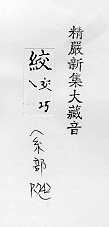 精嚴新集大藏音
絞
交
25
糸部